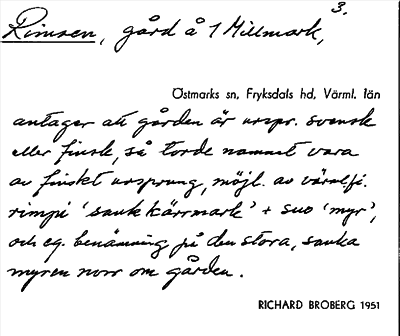 3.
Rimsen, gård å 1 Millmark,
Östmarks sn, Fryksdals hd, Värml. län
antager att gården är urspr. svensk
eller finsk, så torde namnet vara
av finskt ursprung, möjl. av värml.fi.
rimpi 'sank kärrmark' + suo 'myr',
och eg. benämning på den stora, sanka
myren norr om gården.
RICHARD BROBERG 1951